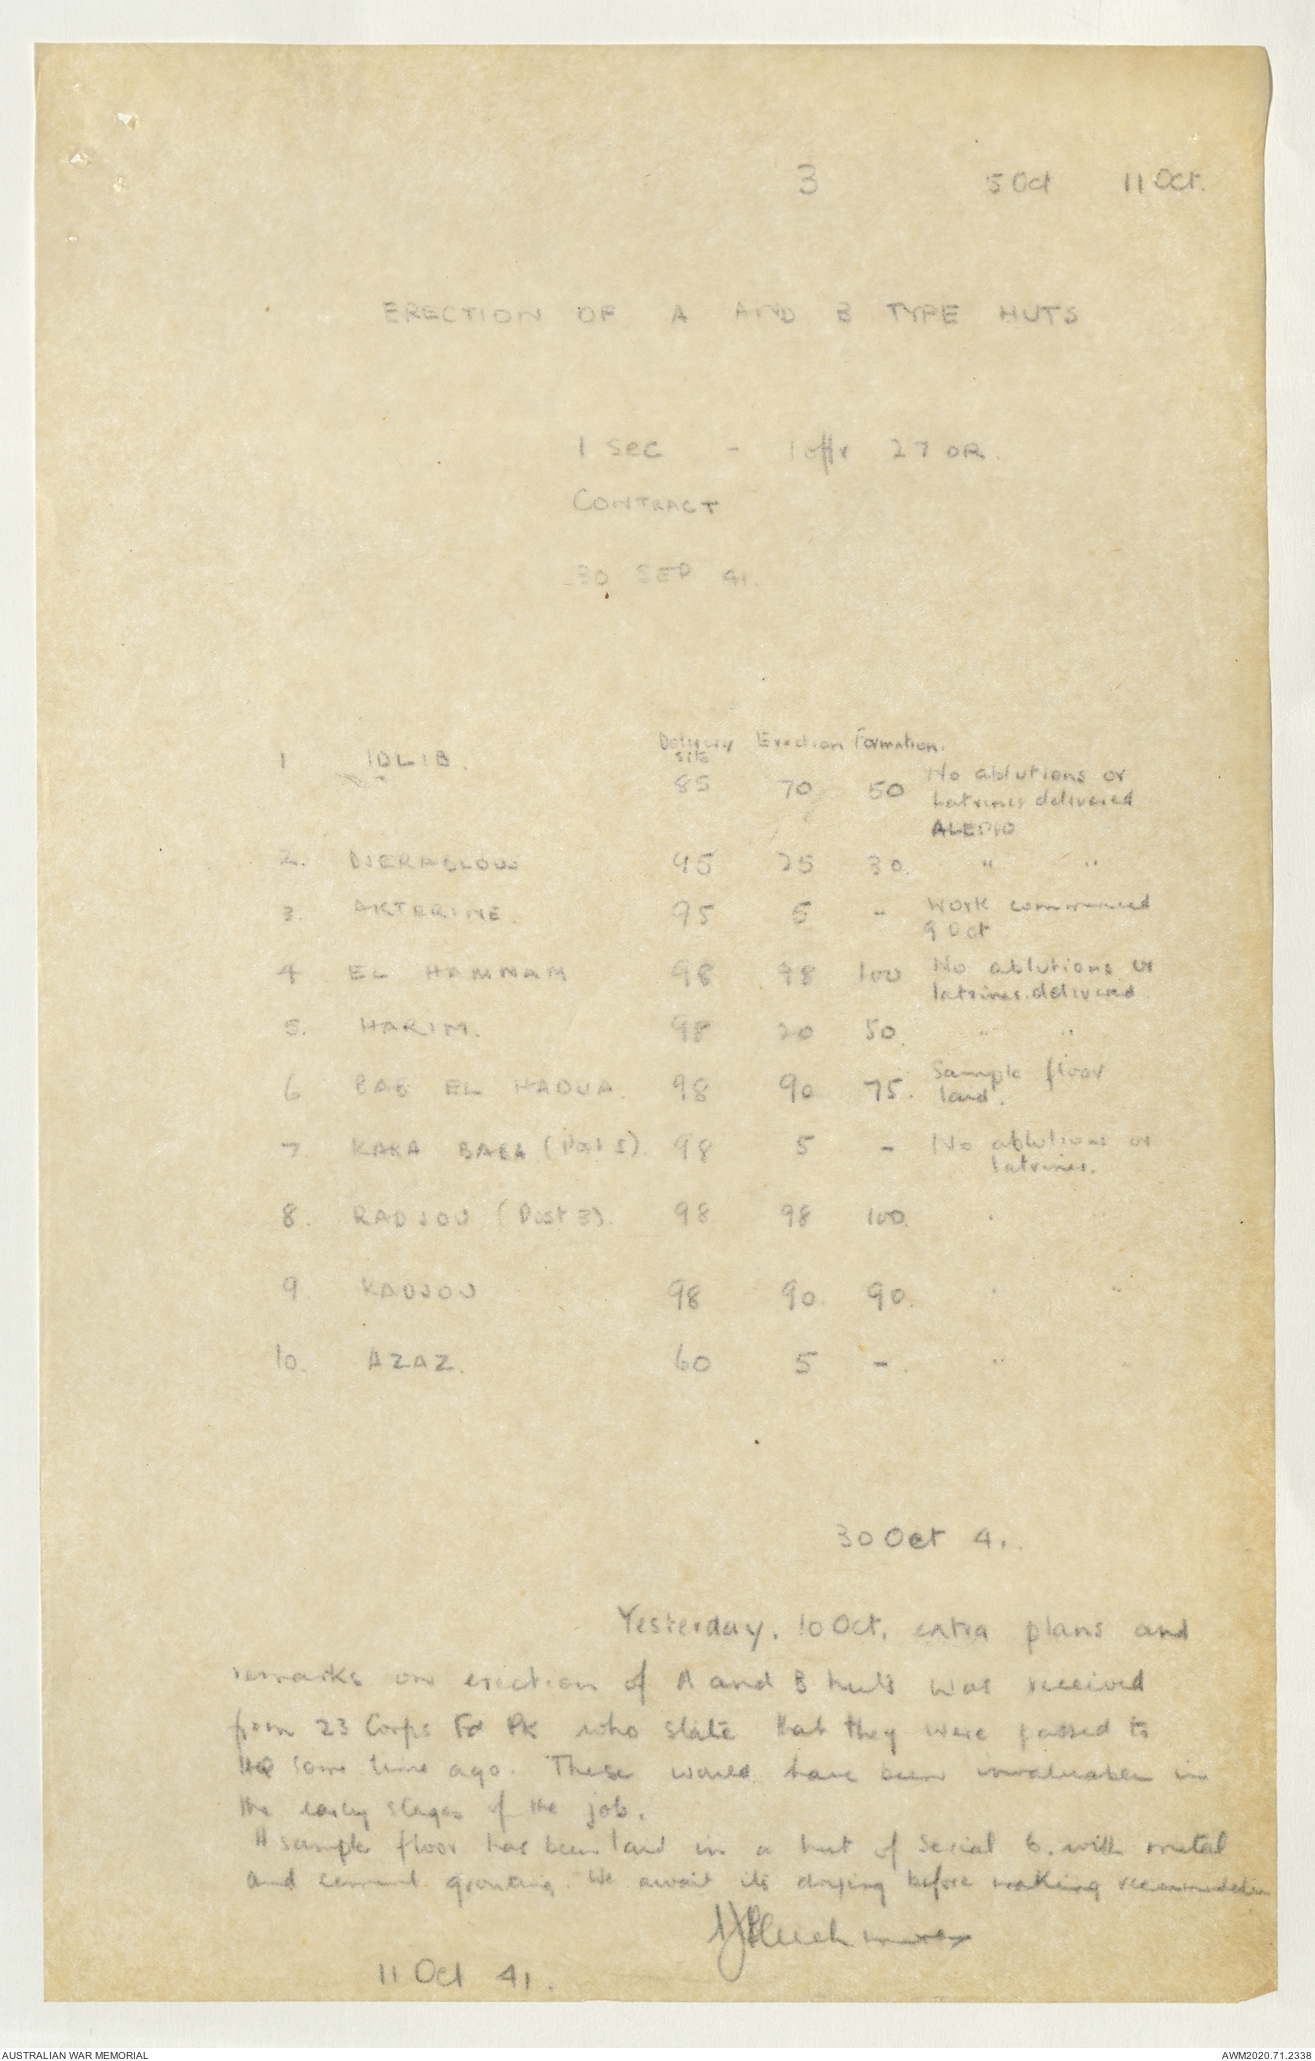 3 5 Oct 11 Oct.
ERECTION OF A AND B TYPE HUTS
1 Sec - 1 offr 27 OR.
CONTRACT
30 SEP 41.
Delivery Erection Formation.
site
1 IDLIB. 85 70 50 No ablutions or
Latrines delivered
ALEPPO
2. DJERABLOUS 95 25 30. " "
3. AKTERINE. 95 5 - Work commenced
9 Oct
4 EL HAMMAM 98 98 100 No ablutions or
latrines delivered.
5. HARIM. 98 20 50. " "
6 BAB EL HAOUA. 98 90 75. Sample floor
laid.
7 KARA BABA (Post 1) 98 5 - No ablutions or
latrines.
8. RADJOU (Post 3). 98 98 100. " "
9. RADJOU 98 90 90. " "
10. AZAZ. 60 5 -. " "
30 Oct 41.
Yesterday, 10 Oct, extra plans and
remarks on erection of A and B huts was received
from 23 Corps Fd Pk who state that they were passed to
HQ some time ago. These would have been invaluable in
the early stages of the job.
A sample floor has been laid in a hut of Serial 6. with metal
and cement grouting. We await its drying before making recommendation
11 Oct 41.